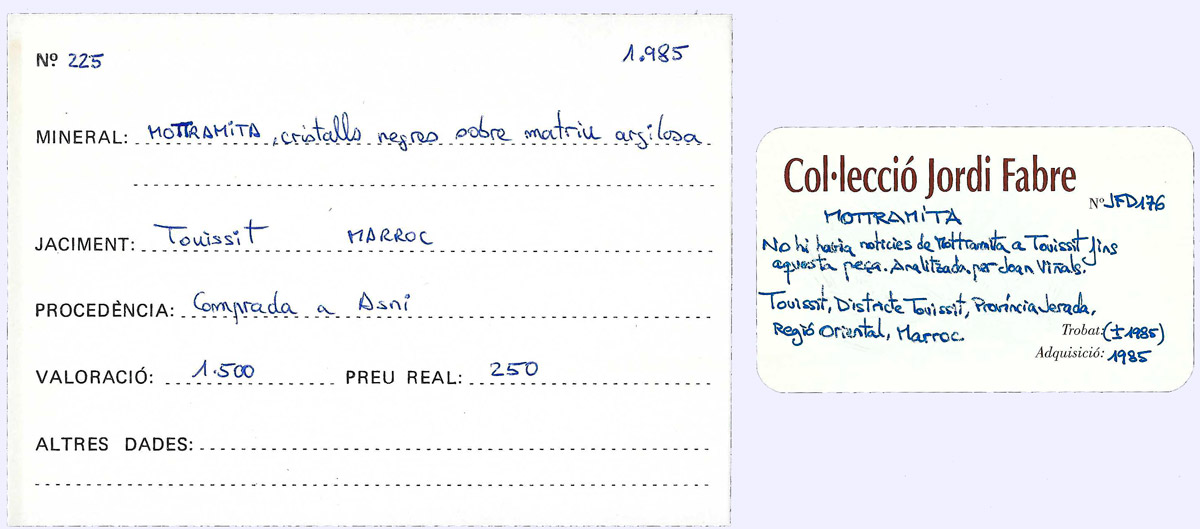 Nº 225
1.985
MINERAL: MOTTRAMITA, cristalls negres sobre matriu argilosa
JACIMENT: Touissit MARROC
PROCEDÈNCIA: Comprada a Asni
VALORACIÓ: 1.500 PREU REAL: 250
ALTRES DADES:
Col·lecció Jordi Fabre
Nº JFD176
MOTTRAMITA
No hi havia notícies de Mottramita a Touissit fins
aquesta peça. Analitzada per Joan Viñals.
Touissit, Districte Touissit, Província Jerada,
Regió Oriental, Marroc.
Trobat: (±1985)
Adquisició: 1985